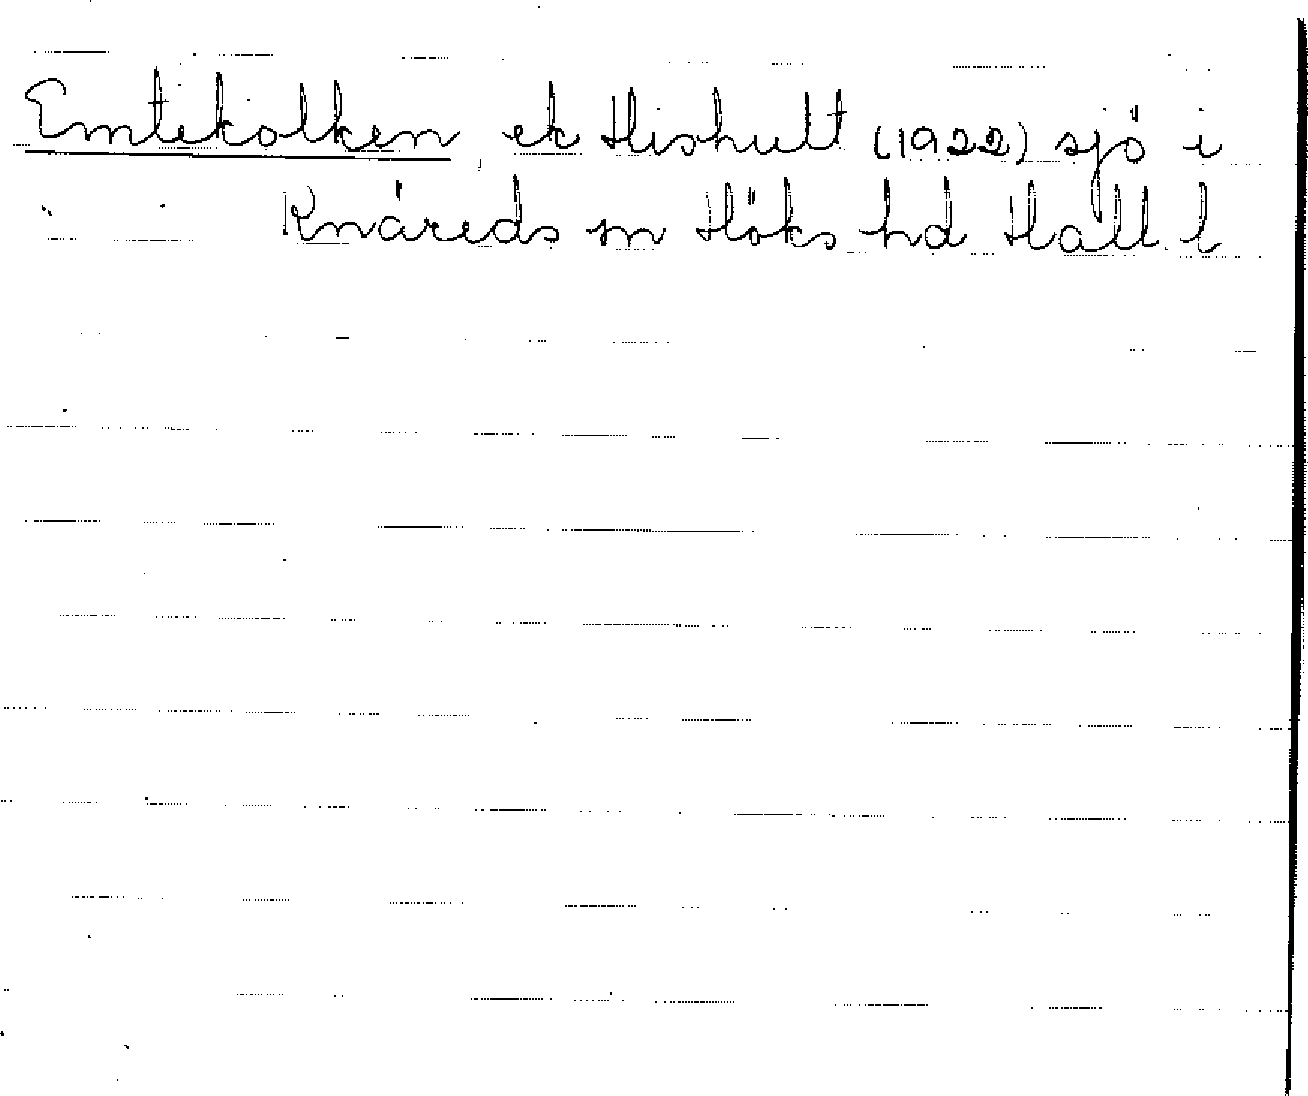 Emtekolken ek Hishult (1922) sjö i
Knäreds sn Höks hd Hall l